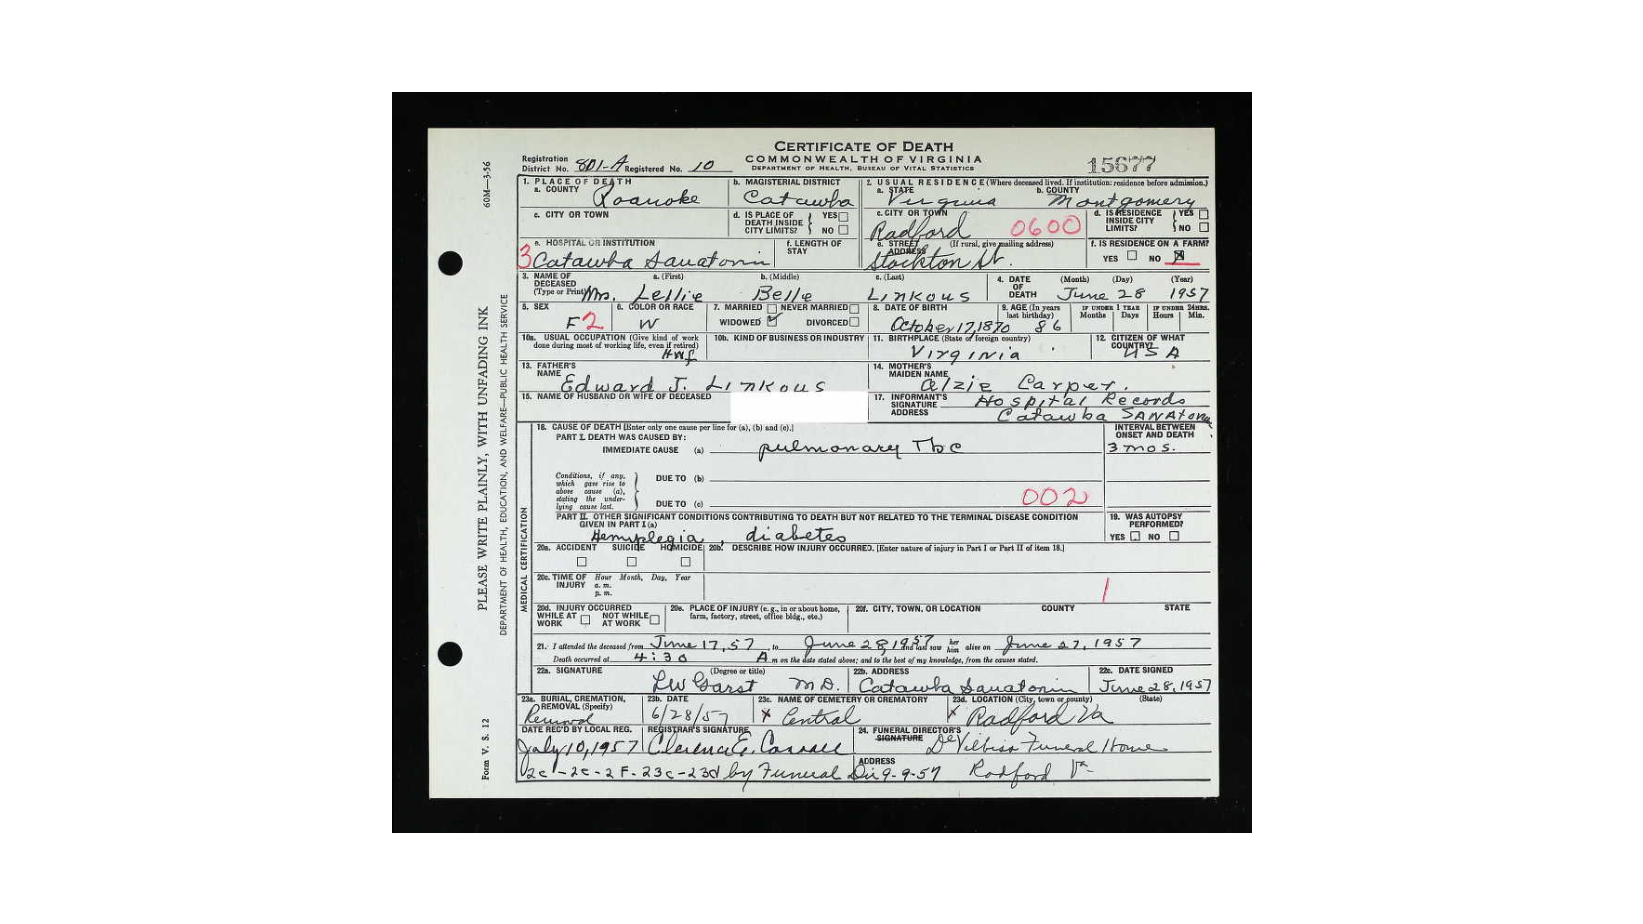 CERTIFICATE OF DEATH
COMMONWEALTH OF VIRGINIA
DEPARTMENT OF HEALTH, BUREAU OF VITAL STATISTICS
Registration District No. 801-A Registered No. 10
15677
60M—3-56
PLEASE WRITE PLAINLY, WITH UNFADING INK
DEPARTMENT OF HEALTH, EDUCATION, AND WELFARE—PUBLIC HEALTH SERVICE
Form V. S. 12
1. PLACE OF DEATH
a. COUNTY Roanoke
b. MAGISTERIAL DISTRICT Catawba
2. USUAL RESIDENCE (Where deceased lived. If institution: residence before admission.)
a. STATE Virginia
b. COUNTY Montgomery
c. CITY OR TOWN
d. IS PLACE OF DEATH INSIDE CITY LIMITS? YES NO
c. CITY OR TOWN Radford 0600
d. IS RESIDENCE INSIDE CITY LIMITS? YES NO
3
e. HOSPITAL OR INSTITUTION Catawba Sanatorium
f. LENGTH OF STAY
e. STREET ADDRESS (If rural, give mailing address) Stockton St.
f. IS RESIDENCE ON A FARM? YES NO X
3. NAME OF DECEASED (Type or Print) a. (First) b. (Middle) c. (Last)
Mrs. Lellie Belle Linkous
4. DATE OF DEATH (Month) (Day) (Year)
June 28 1957
5. SEX F 2
6. COLOR OR RACE W
7. MARRIED NEVER MARRIED WIDOWED DIVORCED
8. DATE OF BIRTH October 17, 1870
9. AGE (In years last birthday) 86
IF UNDER 1 YEAR Months Days
IF UNDER 24 HRS. Hours Min.
10a. USUAL OCCUPATION (Give kind of work done during most of working life, even if retired) Hwf
10b. KIND OF BUSINESS OR INDUSTRY
11. BIRTHPLACE (State or foreign country) Virginia
12. CITIZEN OF WHAT COUNTRY? USA
13. FATHER'S NAME Edward J. Linkous
14. MOTHER'S MAIDEN NAME Alzie Carper.
15. NAME OF HUSBAND OR WIFE OF DECEASED
17. INFORMANT'S SIGNATURE Hospital Records
ADDRESS Catawba Sanatorium
MEDICAL CERTIFICATION
18. CAUSE OF DEATH [Enter only one cause per line for (a), (b) and (c).]
INTERVAL BETWEEN ONSET AND DEATH
PART I. DEATH WAS CAUSED BY:
IMMEDIATE CAUSE (a) pulmonary Tbc 3 mos.
Conditions, if any, which gave rise to above cause (a), stating the underlying cause last.
DUE TO (b)
DUE TO (c) 002
PART II. OTHER SIGNIFICANT CONDITIONS CONTRIBUTING TO DEATH BUT NOT RELATED TO THE TERMINAL DISEASE CONDITION GIVEN IN PART I (a)
Hemiplegia, diabetes
19. WAS AUTOPSY PERFORMED? YES NO
20a. ACCIDENT SUICIDE HOMICIDE
20b. DESCRIBE HOW INJURY OCCURRED. [Enter nature of injury in Part I or Part II of item 18.]
20c. TIME OF INJURY Hour Month, Day, Year a. m. p. m.
1
20d. INJURY OCCURRED WHILE AT WORK NOT WHILE AT WORK
20e. PLACE OF INJURY (e. g., in or about home, farm, factory, street, office bldg., etc.)
20f. CITY, TOWN, OR LOCATION COUNTY STATE
21. I attended the deceased from June 17, 57, to June 28, 1957 and last saw her him alive on June 27, 1957
Death occurred at 4:30 A m on the date stated above; and to the best of my knowledge, from the causes stated.
22a. SIGNATURE (Degree or title) LW Garst M.D.
22b. ADDRESS Catawba Sanatorium
22c. DATE SIGNED June 28, 1957
23a. BURIAL, CREMATION, REMOVAL (Specify) Removal
23b. DATE 6/28/57
23c. NAME OF CEMETERY OR CREMATORY x Central
23d. LOCATION (City, town or county) (State) x Radford Va
DATE REC'D BY LOCAL REG. July 10, 1957
REGISTRAR'S SIGNATURE Clarence E.
24. FUNERAL DIRECTOR'S SIGNATURE DeVilbiss Funeral Home
ADDRESS Radford Va
2c-2e-2F-23c-23d by Funeral Dir 9-9-57